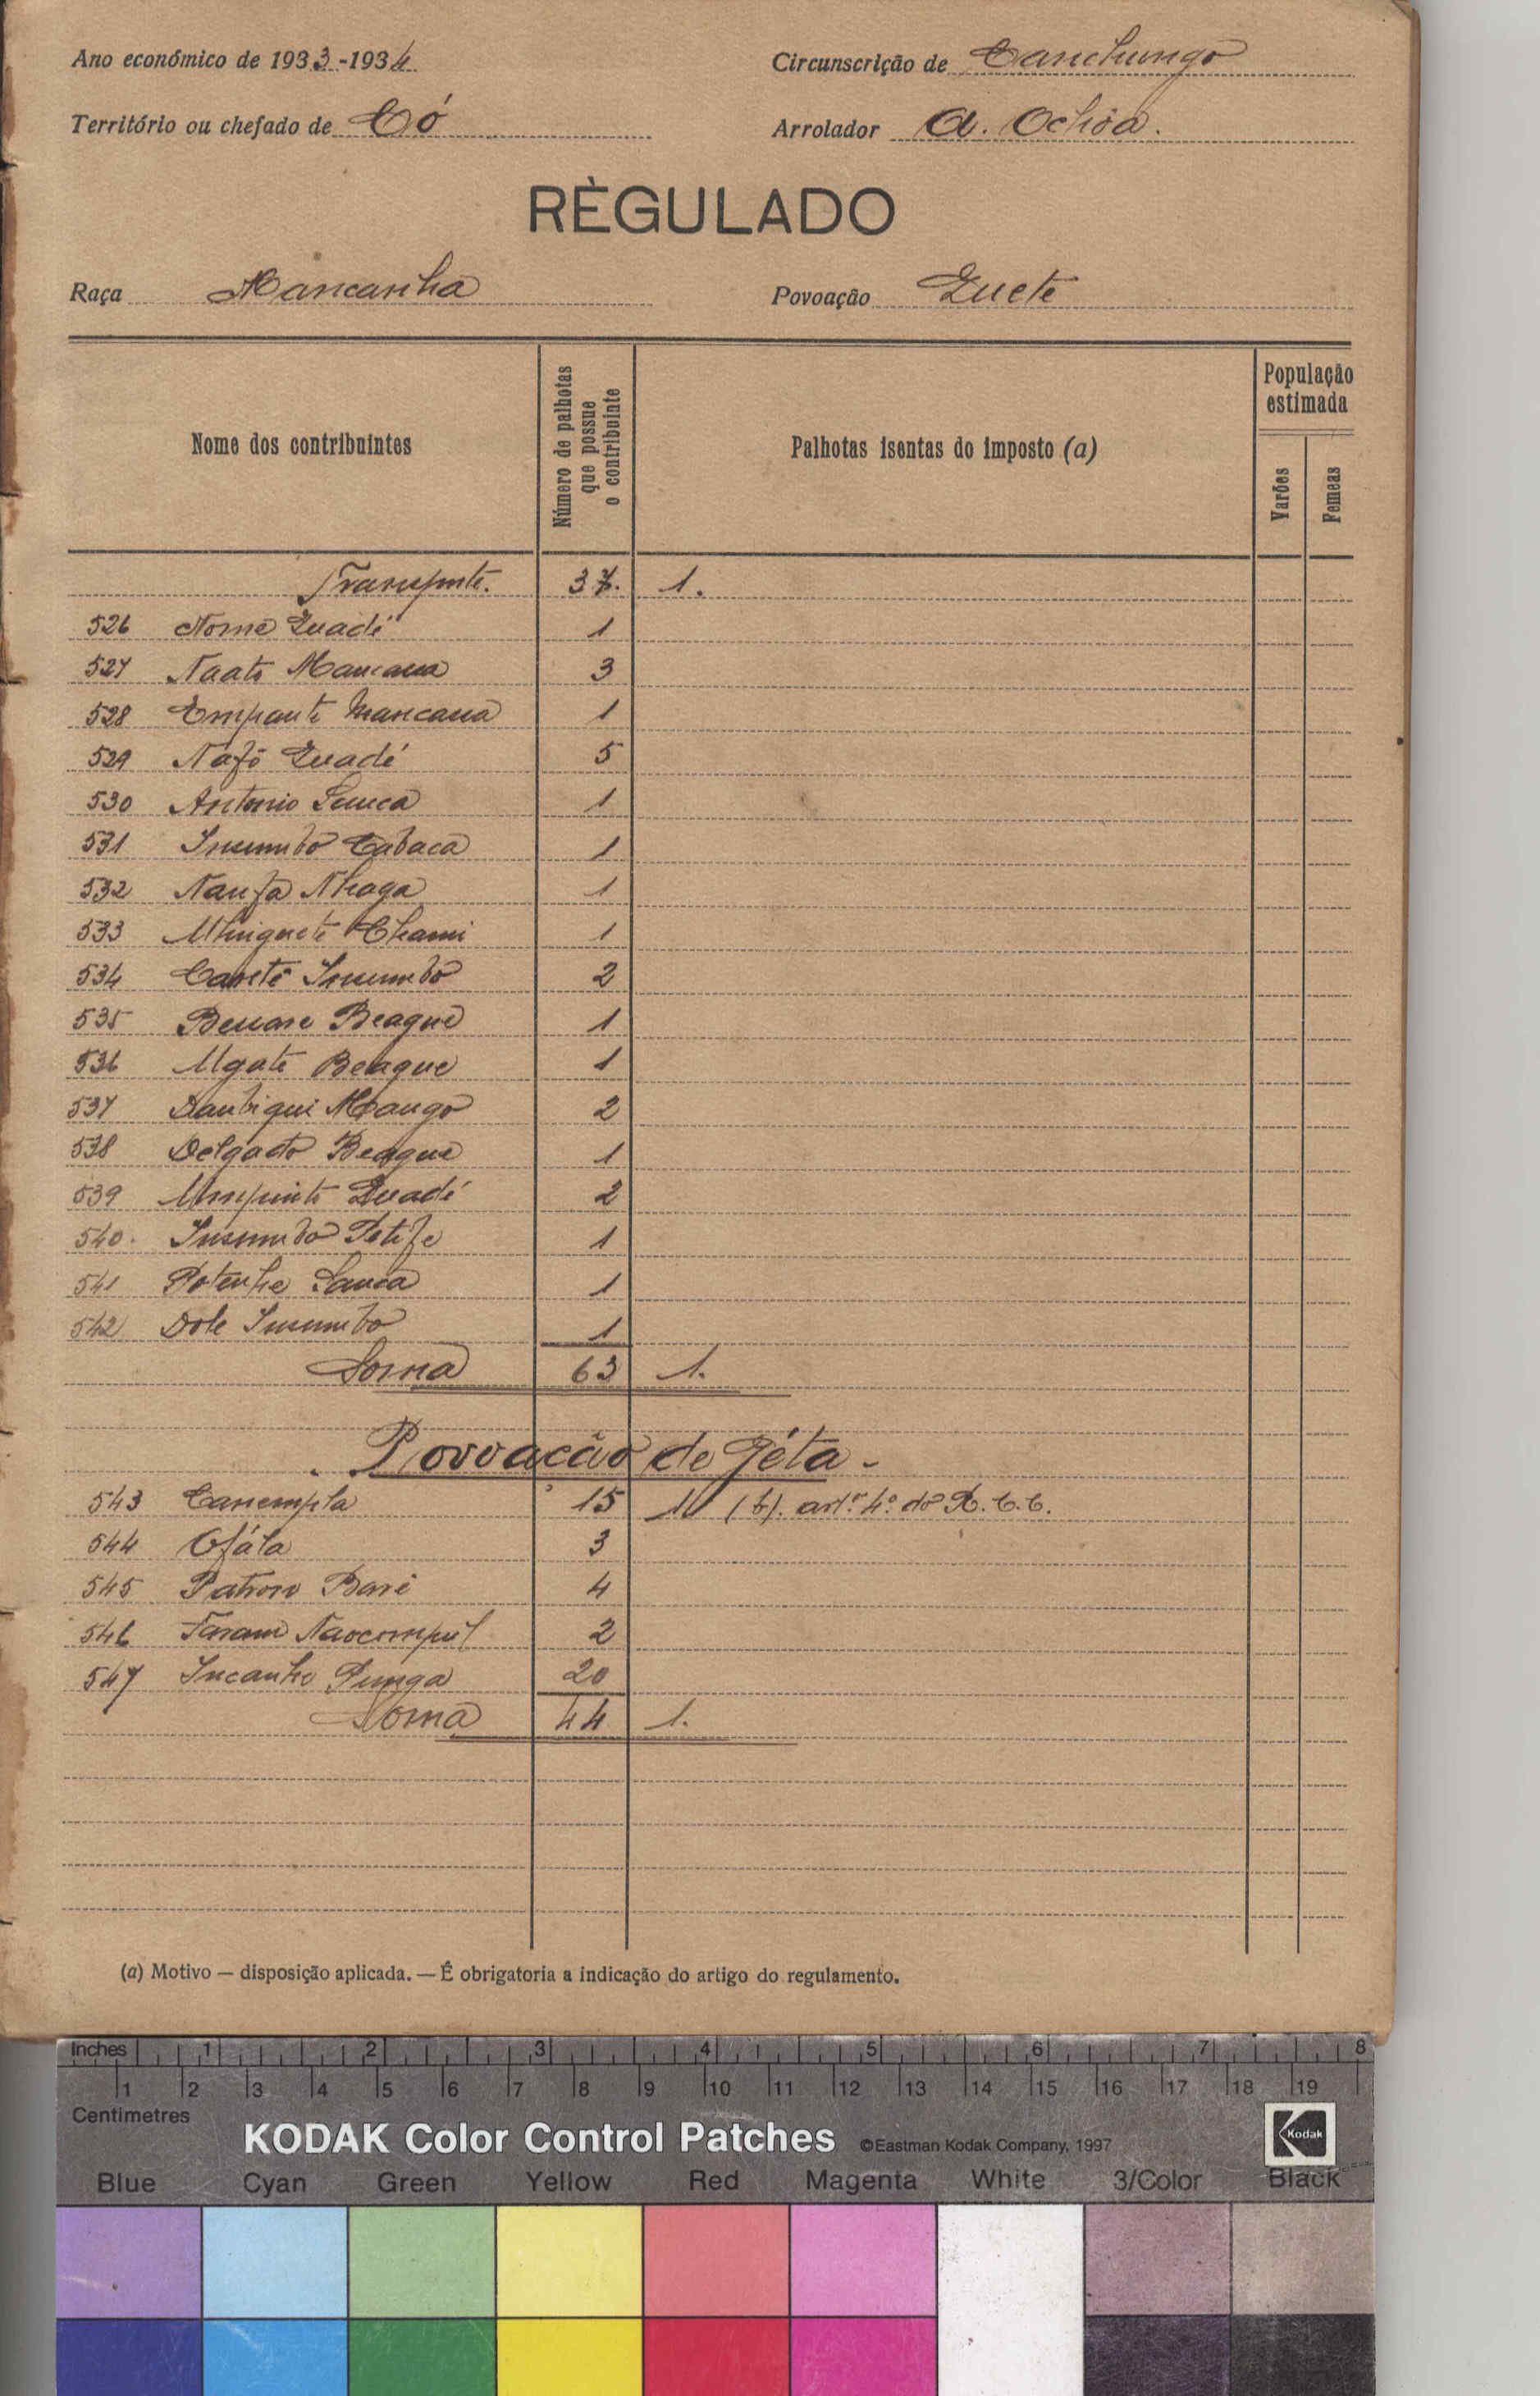 Ano económico de 1933-1934 Circunscrição de Canchungo
Território ou chefado de Có Arrolador A. Ochôa.
RÈGULADO
Raça Mancanha Povoação Quete
Nome dos contribuintes
Número de palhotas que possue o contribuinte
Palhotas isentas do imposto (a)
População estimada
Varões
Femeas
Transporte. 37. 1.
526 Nome Quadé 1
527 Naato Mancana 3
528 Empante Mancana 1
529 Nafô Quadé 5
530 Antonio 1
531 Insumbo Cabaca 1
532 Naufa Nhaga 1
533 Chami 1
534 Insumbo 2
535 Beague 1
536 Ugate Beague 1
537 Mango 2
538 Delgado Beague 1
539 Umpinte Quadé 2
540. Insumbo 1
541 Potenhe 1
542 Dole Insumbo 1
Soma 63 1.
Povoacão de Péta -
543 Canempla 15 1 (b). artº. 4º. do R. C. C.
544 Ofála 3
545 Patrono Baré 4
546 2
547 Incanho Punga 20
Soma 44 1.
(a) Motivo — disposição aplicada. — É obrigatoria a indicação do artigo do regulamento.
Inches 1 2 3 4 5 6 7 8
1 2 3 4 5 6 7 8 9 10 11 12 13 14 15 16 17 18 19
Centimetres
KODAK Color Control Patches ©Eastman Kodak Company, 1997 Kodak
Blue Cyan Green Yellow Red Magenta White 3/Color Black